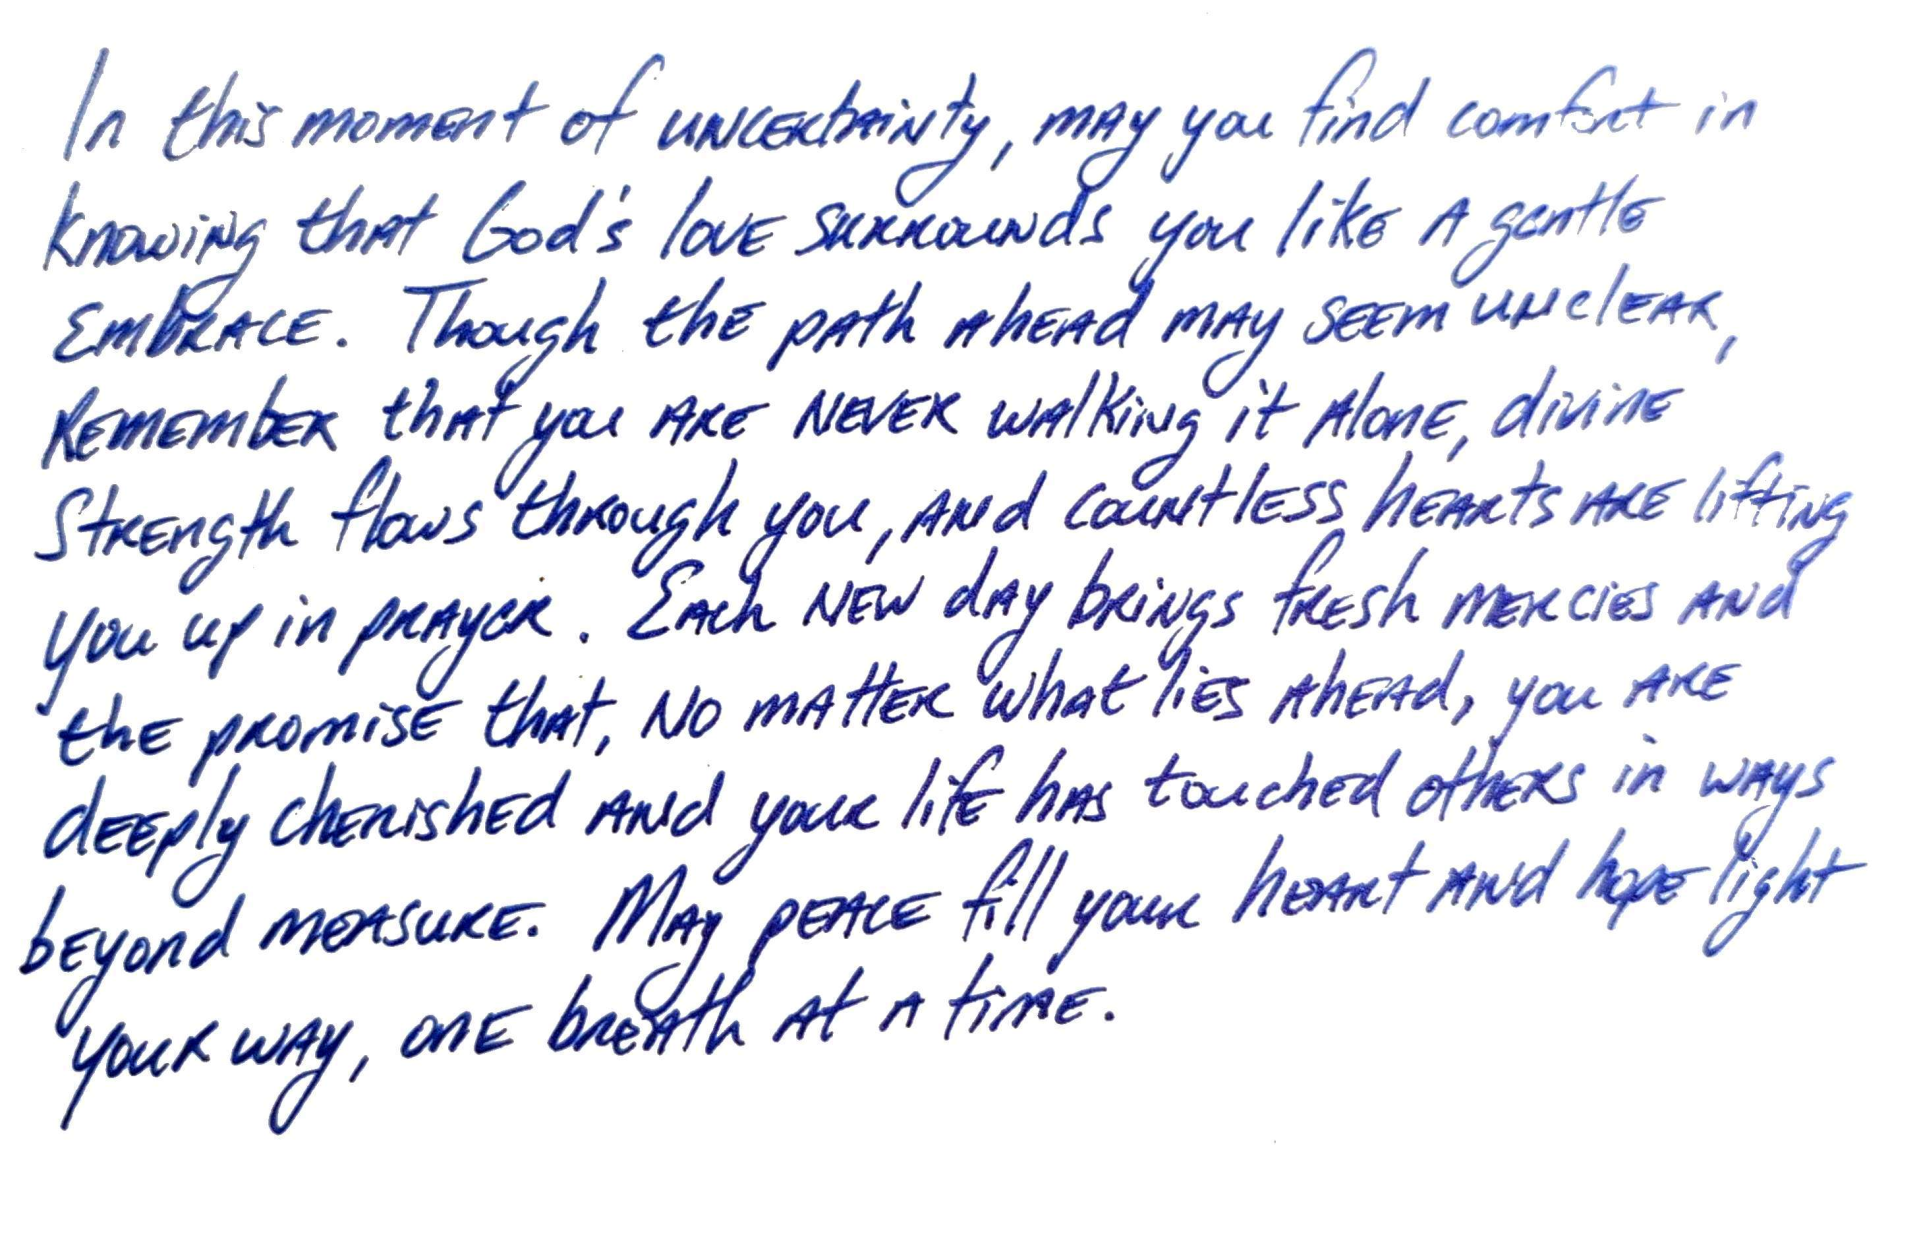 In this moment of uncertainty, may you find comfort in
knowing that God's love surrounds you like a gentle
embrace. Though the path ahead may seem unclear,
remember that you are never walking it alone, divine
strength flows through you, and countless hearts are lifting
you up in prayer. Each new day brings fresh mercies and
the promise that, no matter what lies ahead, you are
deeply cherished and your life has touched others in ways
beyond measure. May peace fill your heart and hope light
your way, one breath at a time.